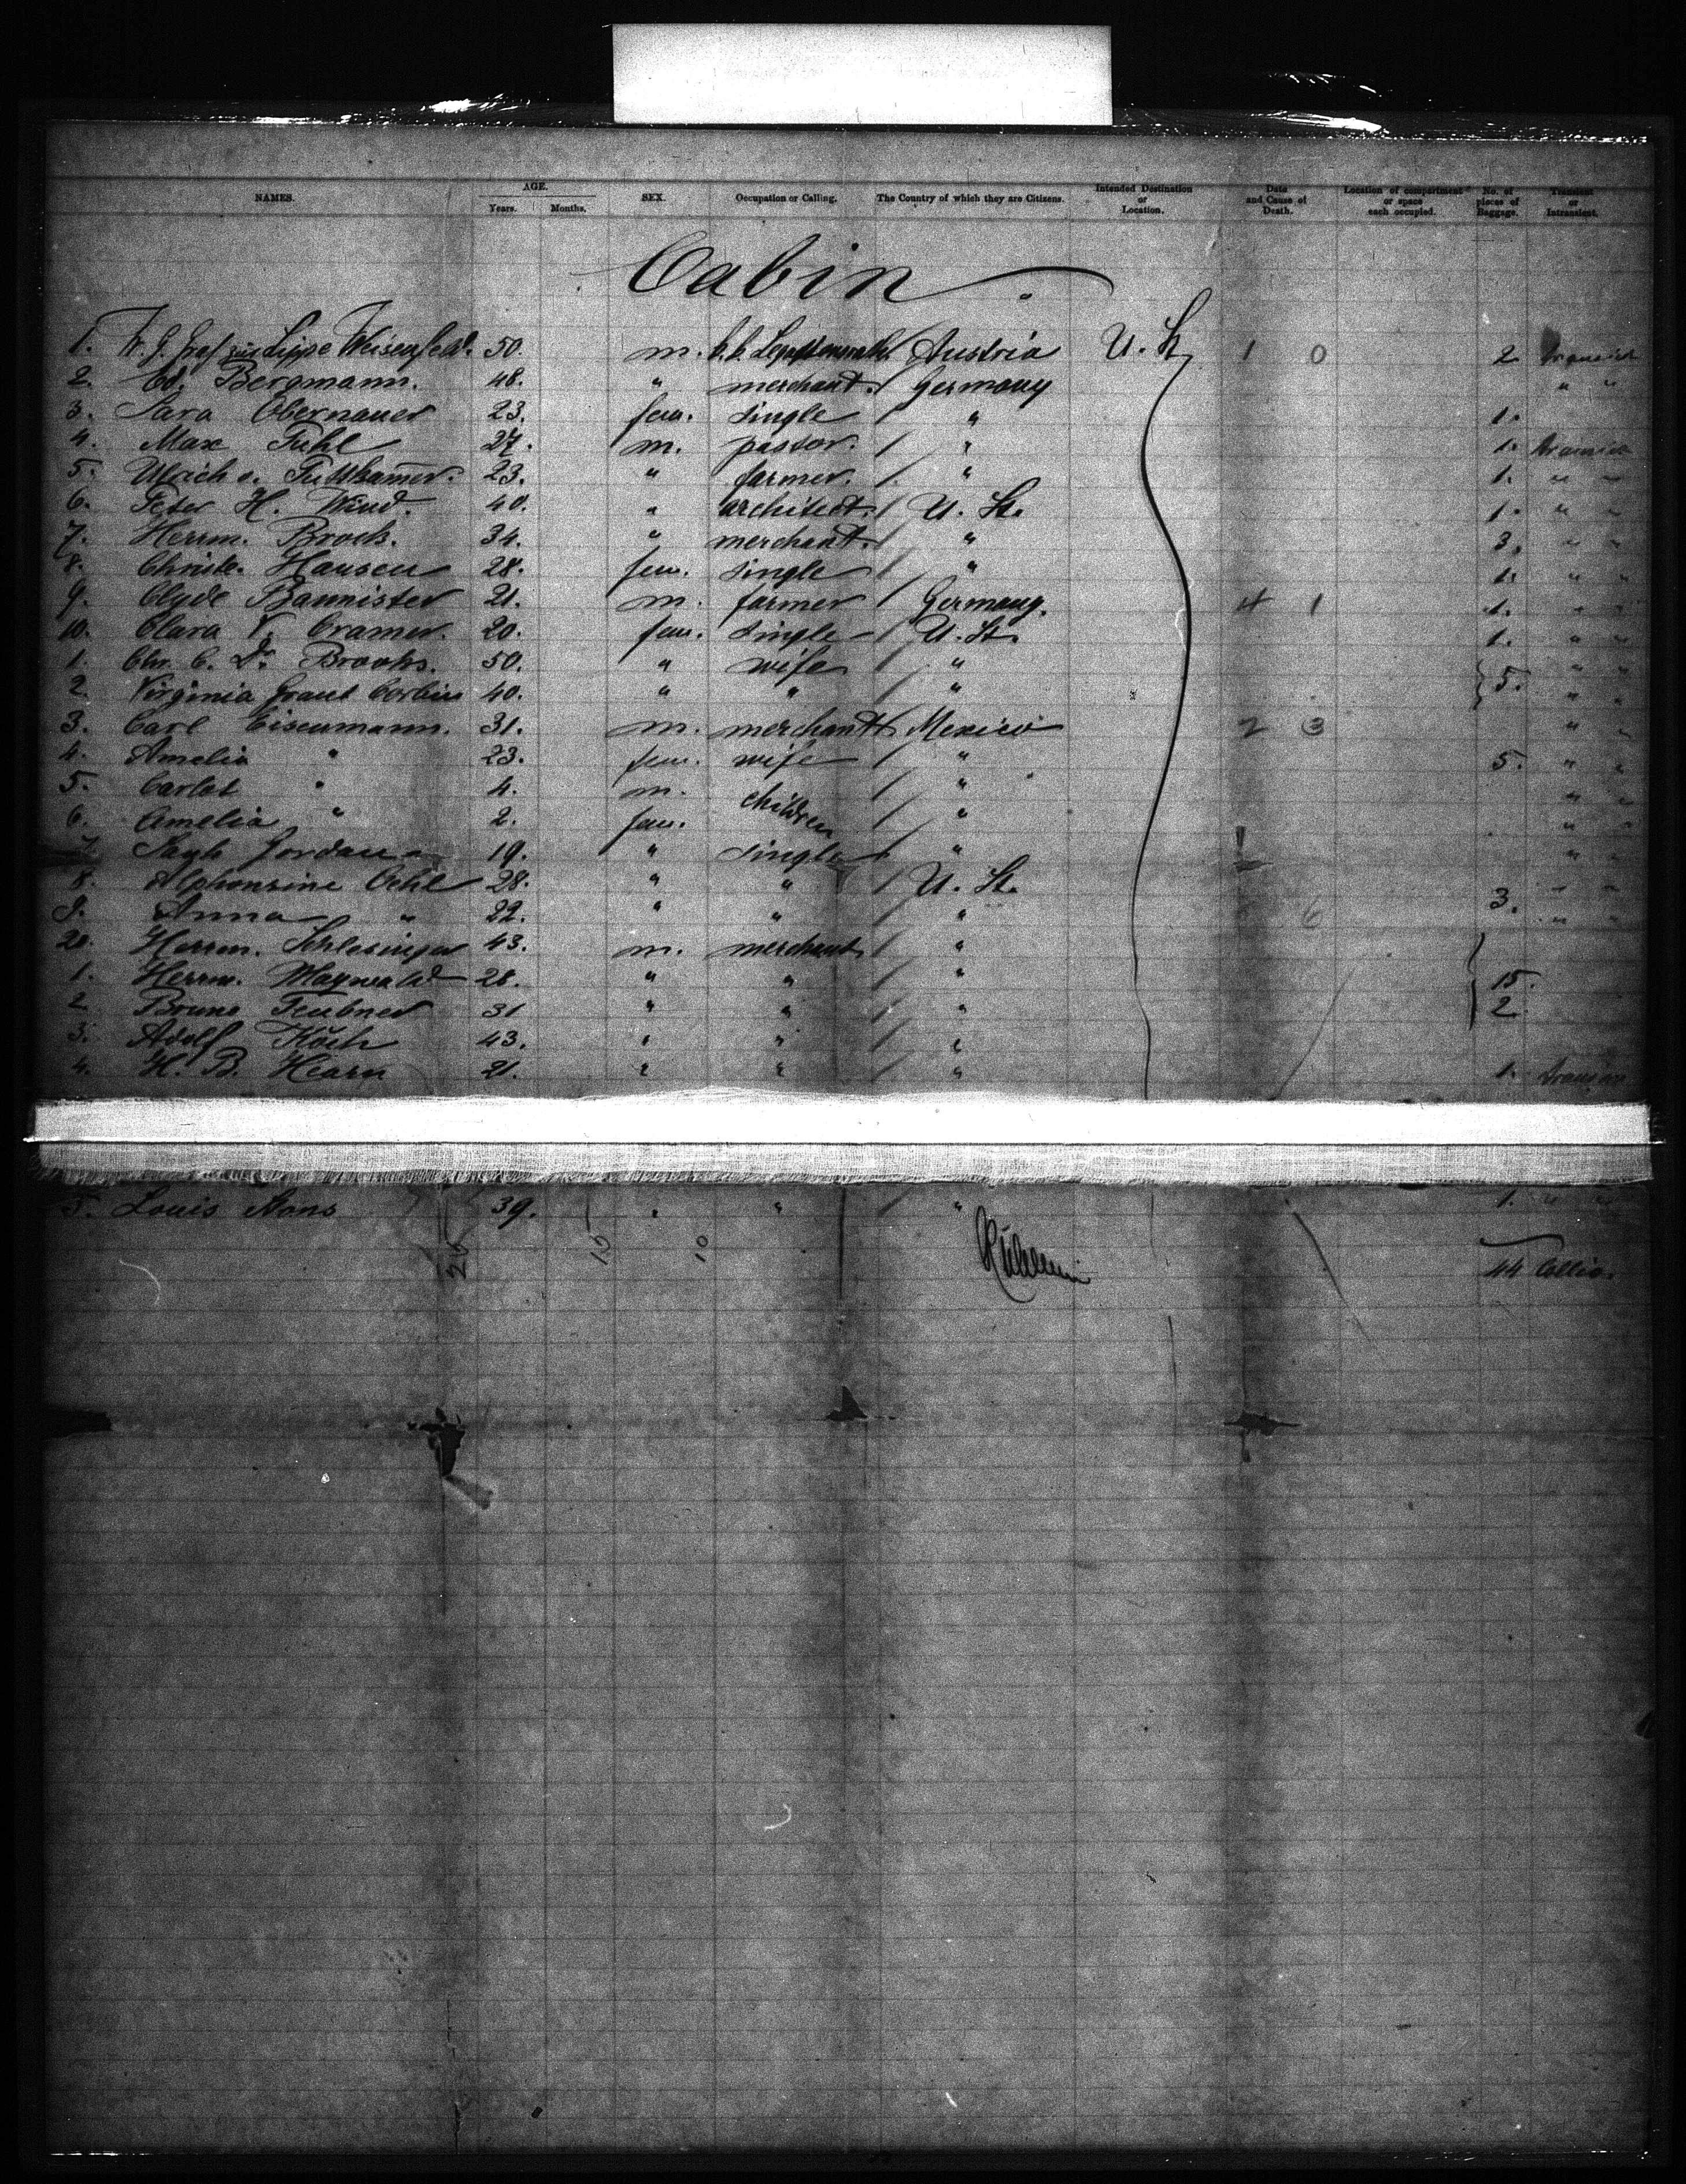 NAMES. AGE. Years. Months. SEX. Occupation or Calling. The Country of which they are Citizens. Intended Destination or Location. Date and Cause of Death. Location of compartment or space each occupied. No. of pieces of Baggage. Transient or Intransient.
Cabin
1. Graf zur Lippe Weisenfeld. 50. m. k. k. Austria U. St. 1 0 2
2. Ed. Bergmann. 48. " merchant. / Germany " "
3. Sara Obernauer 23. fem. single / " 1.
4. Max 27. m. pastor. / " 1.
5. Ulrich v. Puttkamer. 23. " farmer. / " 1. " "
6. Peter H. Wind. 40. " architect. / U. St. 1. " "
7. Herrm. Brock. 34. " merchant. / " 3. " "
8. Christe. Hansen 28. fem. single / " 1. " "
9. Clyde Bannister 21. m. farmer / Germany. 4 1 1. " "
10. Clara V. Cramer. 20. fem. single / U. St. 1. " "
1. Chr. C. Brooks. 50. " wife / " " "
2. Virginia Grant Corbin 40. " " / " 5. " "
3. Carl Eisenmann. 31. m. merchant / Mexico 2 3 " "
4. Amelia " 23. fem. wife / " 5. " "
5. Carlos " 4. m. children / " " "
6. Amelia " 2. fem. / " " "
7. Jordan 19. " single / " " "
8. Alphonsine Oehl 28. " " / U. St. " "
9. Anna " 22. " " " 6 3. " "
20. Herrm. Schlesinger 43. m. merchant / "
1. Herrm. Maywald 28. " " / " 15.
2. Bruno Teubner 31 " " / " 2.
3. Adolf Koch 43. " " / "
4. H. B. Hearn 21. " " / " 1.
5. Louis Nons 39. " " / " 1. " "
25 15 10
44 Collis.